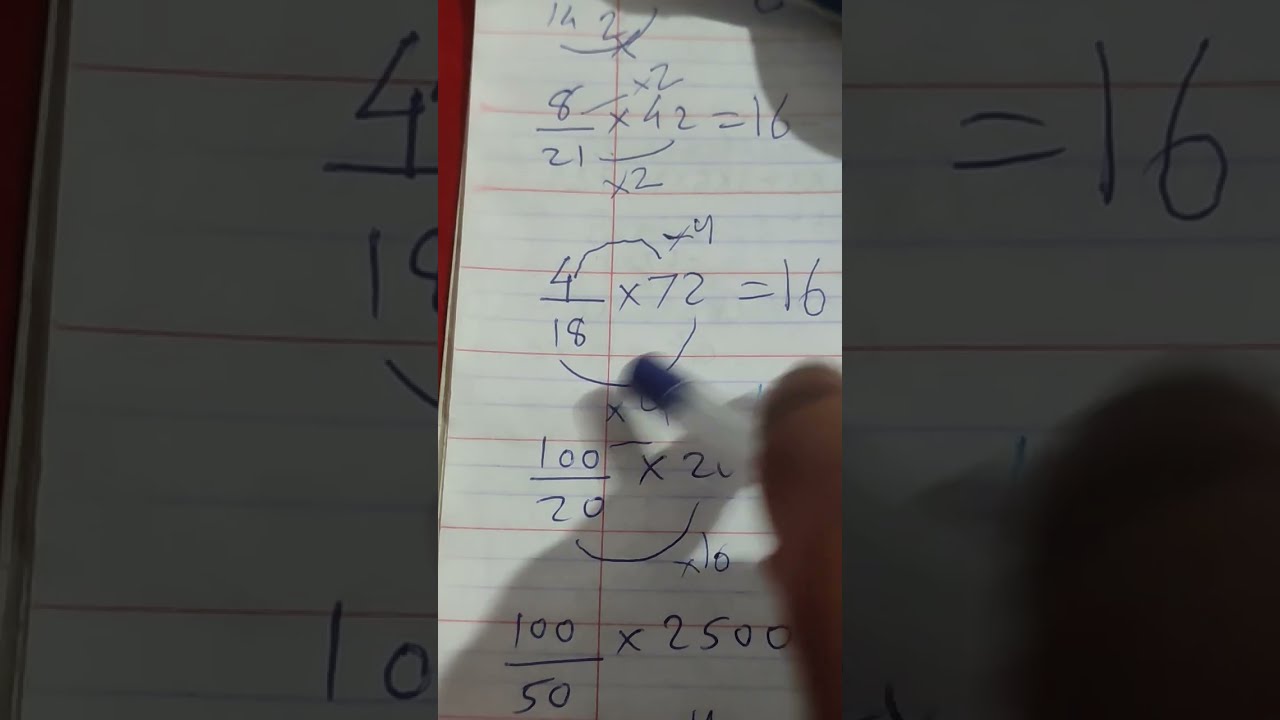 14 2
x2
8/21 x 42 = 16
x2
x4
4/18 x 72 = 16
x 4
100/20 x
x10
100/50 x 2500